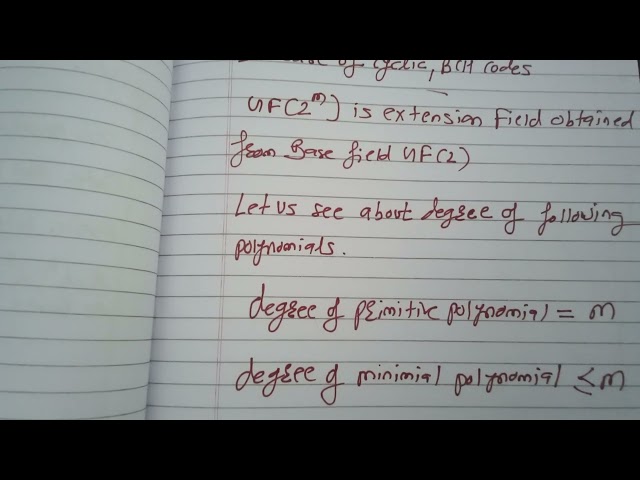 of cyclic, BCH codes
GF(2^m) is extension field obtained
from Base field GF(2)
Let us see about degree of following
polynomials.
degree of primitive polynomial = m
degree of minimial polynomial ≤ m